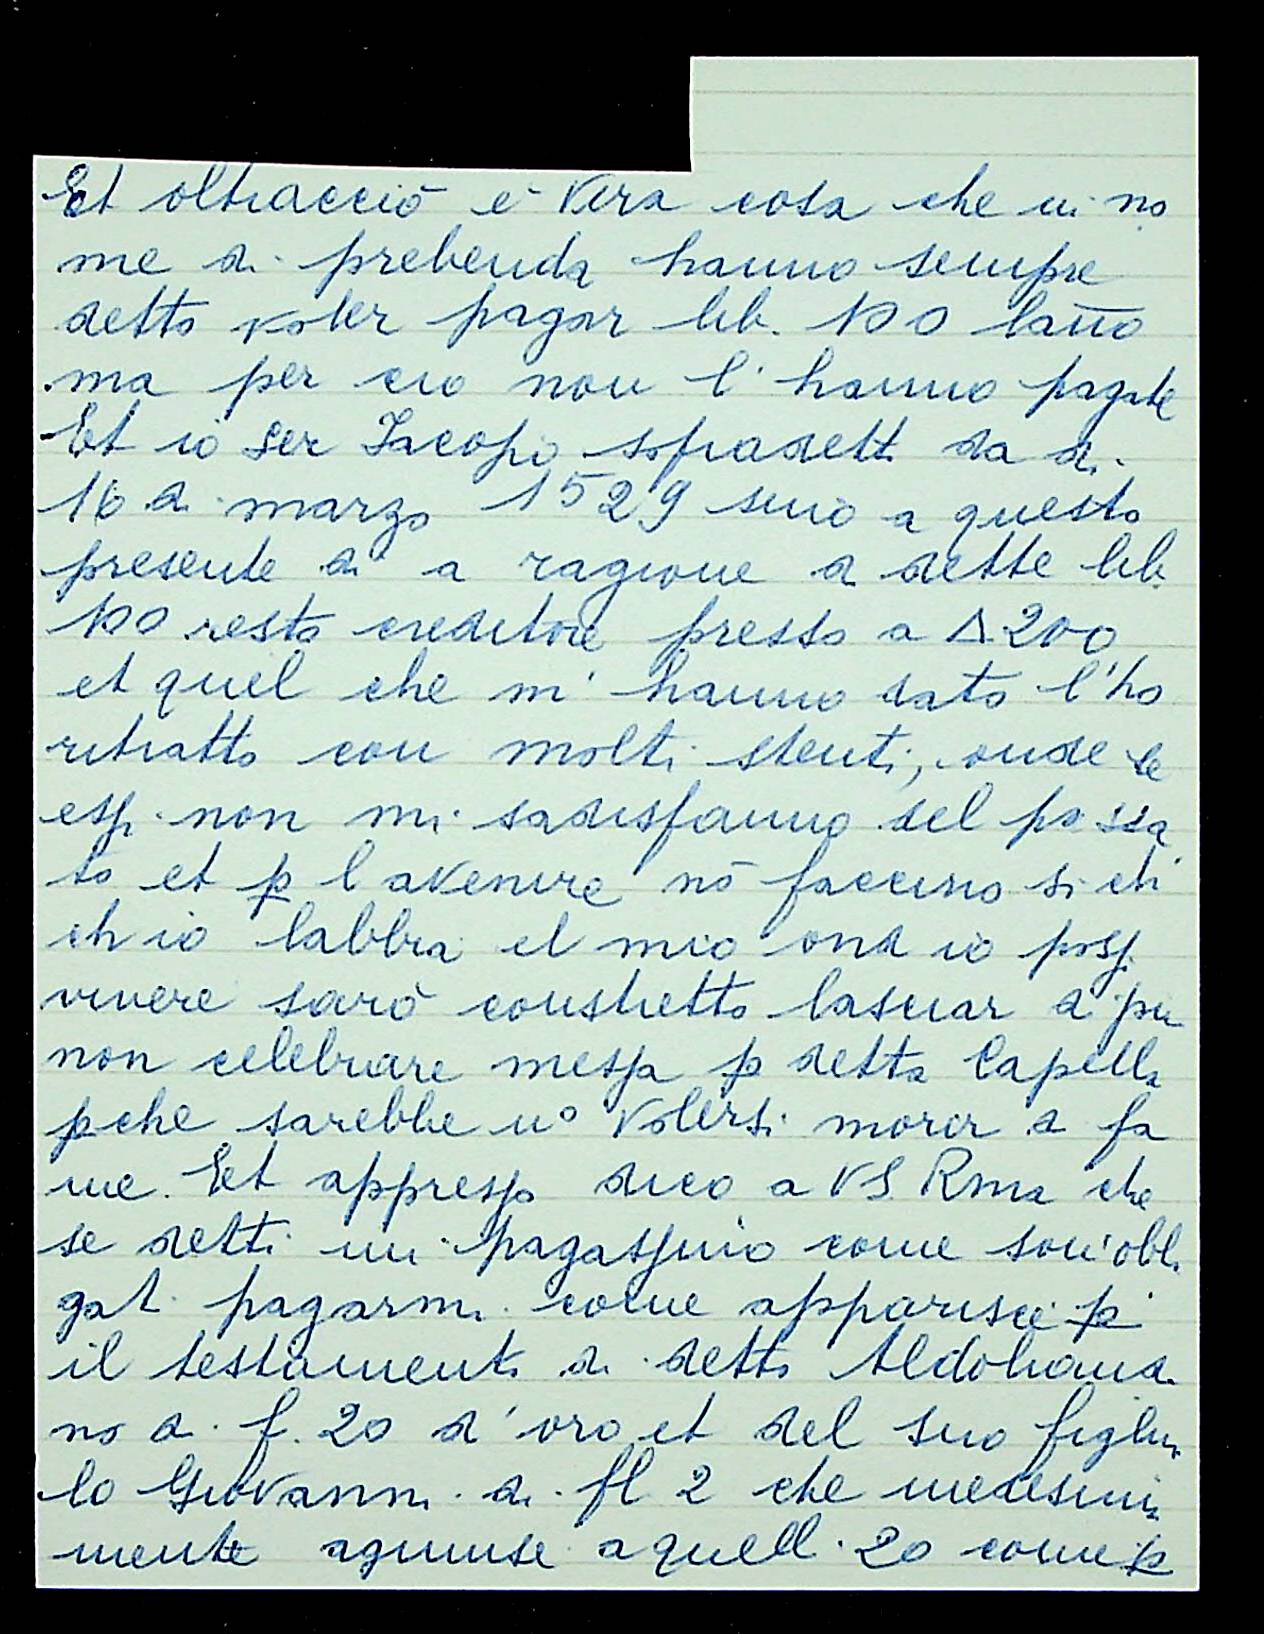 Et oltracciò è vera cosa che in no
me di prebenda hanno sempre
detto voler pagar lib. 100 lan̄o
ma per cio non l'hanno pagate
Et io Ser Jacopo sopradett. da di
16 di marzo 1529 sino a questo
presente di a ragione di dette lib.
100 resto creditore presso a Δ 200
et quel che m'hanno dato l'ho
ritratto con molti stenti, onde se
essi non mi sadisfanno del passa
to et p l avenire nō faccino si ch
ch io labbia el mio ond io possi
vivere sarò constretto lasciar di piu
non celebrare messa p detta Capella
pche sarebbe uo volersi morir di fa
me. Et appresso dico a VS Rma che
se detti mi pagassino come son'obli
gati pagarmi come apparisce p
il testamento di detto Aldobrandi
no di f. 20 d'oro et del suo figliuo
lo Giovanni di fl 2 che medesima
mente aggiunse a quelli 20 come p